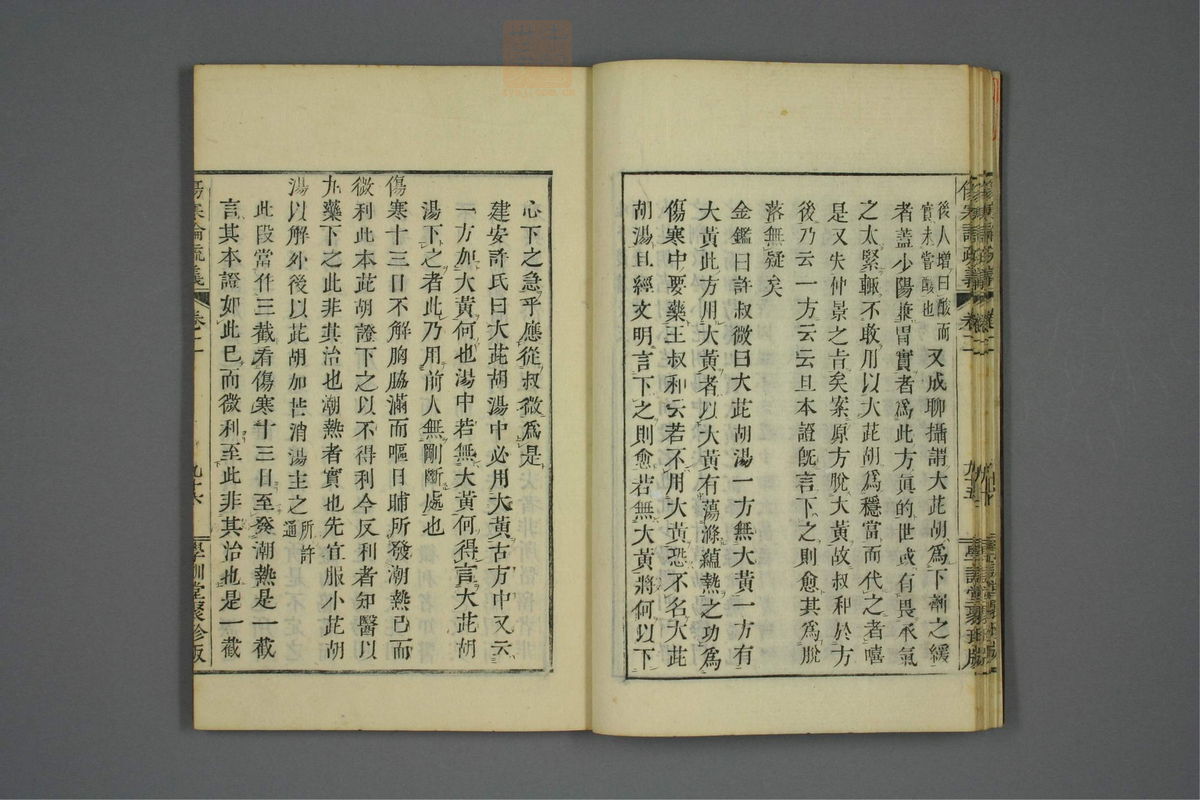 後人增曰酸而
實未嘗酸也
又成聊攝謂大茈胡爲下劑之緩
者蓋少陽兼胃實者爲此方眞的世或有畏承氣
之太緊輙不敢用以大茈胡爲穩當而代之者嘻
是又失仲景之旨矣案原方脫大黃故叔和於方
後乃云一方云云且本證既言下之則愈其爲脫
落無疑矣
金鑑曰許叔微曰大茈胡湯一方無大黃一方有
大黃此方用大黃者以大黃有蕩滌蘊熱之功爲
傷寒中要藥王叔和云若不用大黃恐不名大茈
胡湯且經文明言下之則愈若無大黃將何以下
心下之急乎應從叔微爲是
建安許氏曰大茈胡湯中必用大黃古方中又云
一方加大黃何也湯中若無大黃何得言大茈胡
湯下之者此乃用前人無剛斷處也
傷寒十三日不解胸脇滿而嘔日晡所發潮熱已而
微利此本茈胡證下之以不得利今反利者知醫以
丸藥下之此非其治也潮熱者實也先宜服小茈胡
湯以解外後以茈胡加芒消湯主之
所許
通
此段當作三截看傷寒十三日至發潮熱是一截
言其本證如此已而微利至此非其治也是一截
傷寒論疏義
卷二
九十六
學訓堂聚珍版